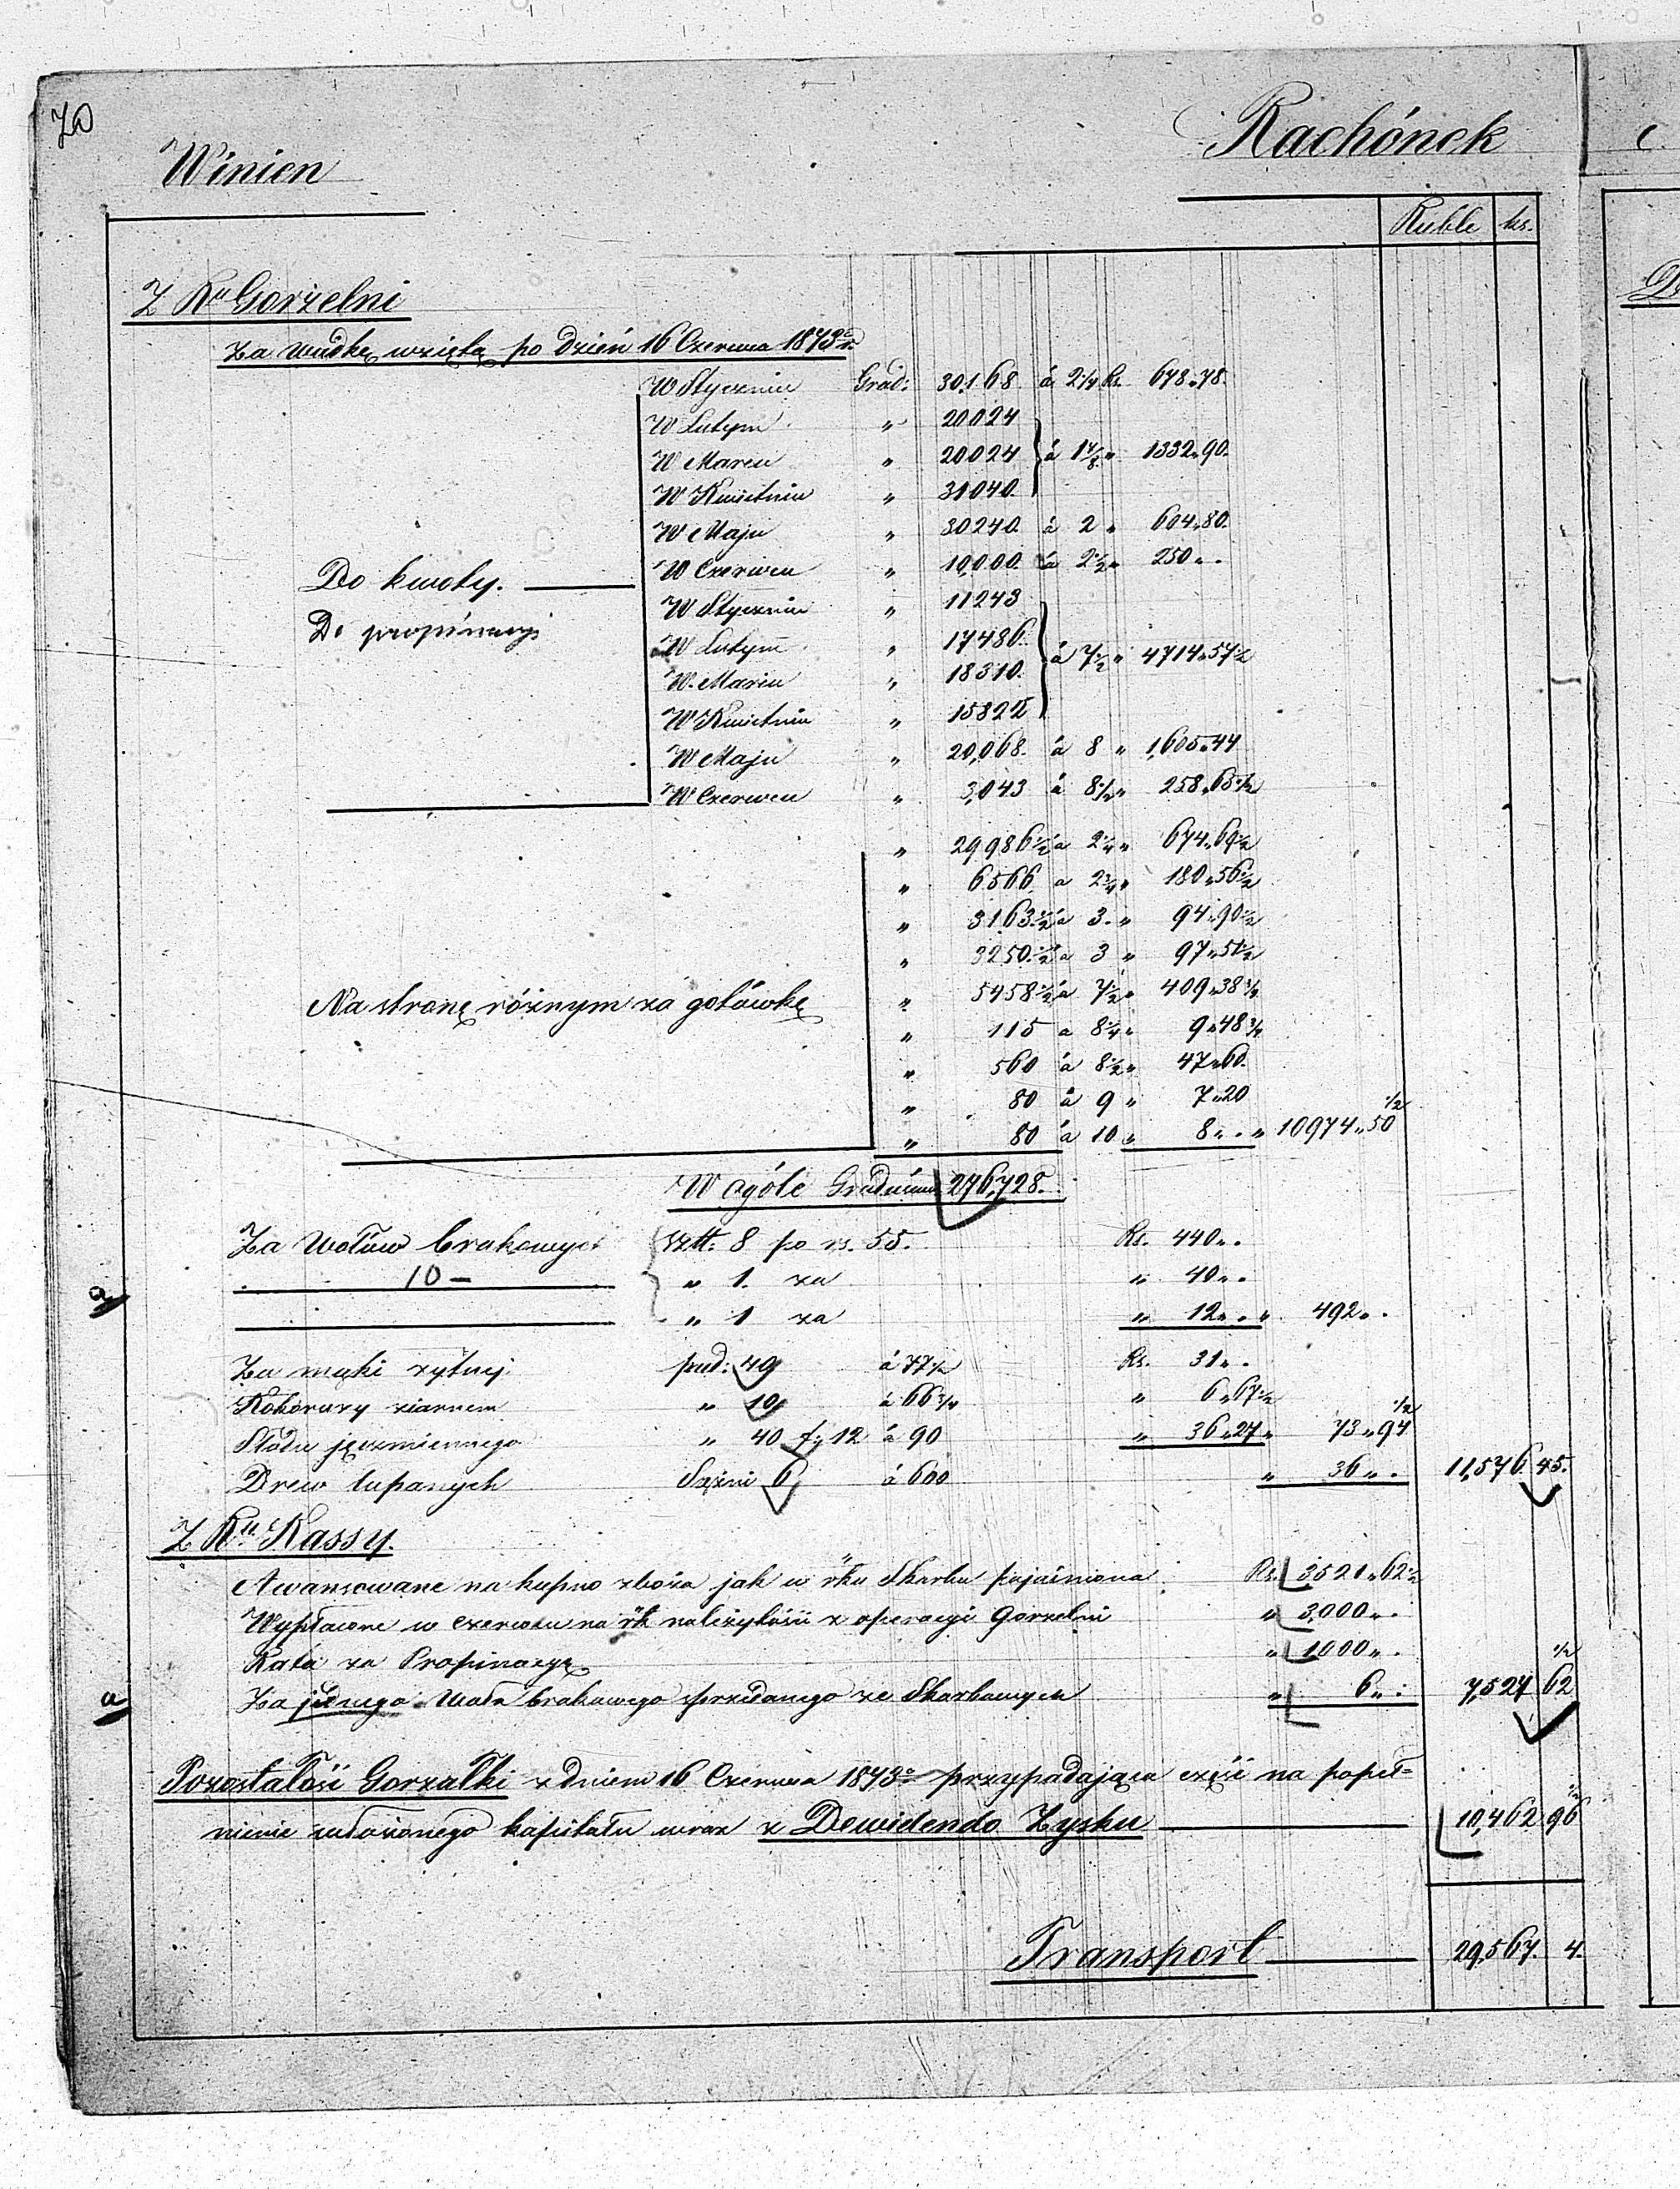 70
Winien Rachónek
Ruble ks.
Z Ku Gorzelni
Za wudkę wziętą po dzień 16 Czerwca 1873 r.
W Styczniu Grad: 30,168 á 2 1/4 ks. 678 „ 78.
W Lutym „ 20024
W Marcu „ 20024 á 1 7/8 „ 1332 „ 90.
W Kwietniu „ 31040.
W Maju „ 30240. á 2 „ 604 „ 80.
Do kwoty. W Czerwcu „ 10,000. á 2 1/2 „ 250 „ .
Do propinacyi W Styczniu „ 11243
W Lutym „ 17486.
W Marcu „ 18310. á 7 1/2 „ 4714 „ 57 1/2
W Kwietniu „ 15822
W Maju „ 20,068. á 8 „ 1,605 „ 44
W Czerwcu „ 3,043 á 8 1/2 „ 258 „ 65 1/2
„ 29986 1/2 á 2 1/4 „ 674 „ 69 1/2
„ 6566 a 2 3/4 „ 180 „ 56 1/2
„ 3163 1/2 á 3. „ 94 „ 90 1/2
„ 3250 1/2 a 3 „ 97 „ 51 1/2
Na stronę różnym za gotówkę „ 5458 1/2 á 7 1/2 „ 409 „ 38 3/4
„ 115 a 8 1/4 „ 9 „ 48 3/4
„ 560 á 8 1/2 „ 47 „ 60.
„ 80 á 9 „ 7 „ 20
„ 80 á 10 „ 8 „ . „ 10974 „ 50 1/2
W ogóle Graduśow 276,728.
Za wołów brakowych Sztt: 8 po rs. 55. Rs. 440 „ .
10 – „ 1. za „ 40 „ .
a „ 1 za „ 12 „ . „ 492 „ .
Za mąki żytnej pud: 40 á 77 1/2 Rs. 31 „ .
Kokoruzy ziarnem „ 10 á 66 3/4 „ 6 „ 67 1/2
Słodu jęczmiennego „ 40 f. 12 á 90 „ 36 „ 27 „ 73 „ 94 1/2
Drew łupanych Sążni 6 á 600 „ 36 „ . 11,576. 45.
Z Ku Kassy.
Awansowane na kupno zboża jak w rku Skarbu pojaśniona Rs. 3521 „ 62 1/2
Wypłacone w czerwcu na rk należytości z operacyi Gorzelni „ 3,000 „ .
Rata za Propinacyę „ 1000 „ .
a Za jednego woła brakowego sprzedanego ze Skarbowych „ 6 „ . 7,527 62 1/2
Pozostałość Gorzałki z dniem 16 Czerwca 1873 r przypadająca część na popeł=
nienie włożonego kapitału wraz z Dewidendo Zysku 10,462 96 1/2
Transport 29,567. 4.